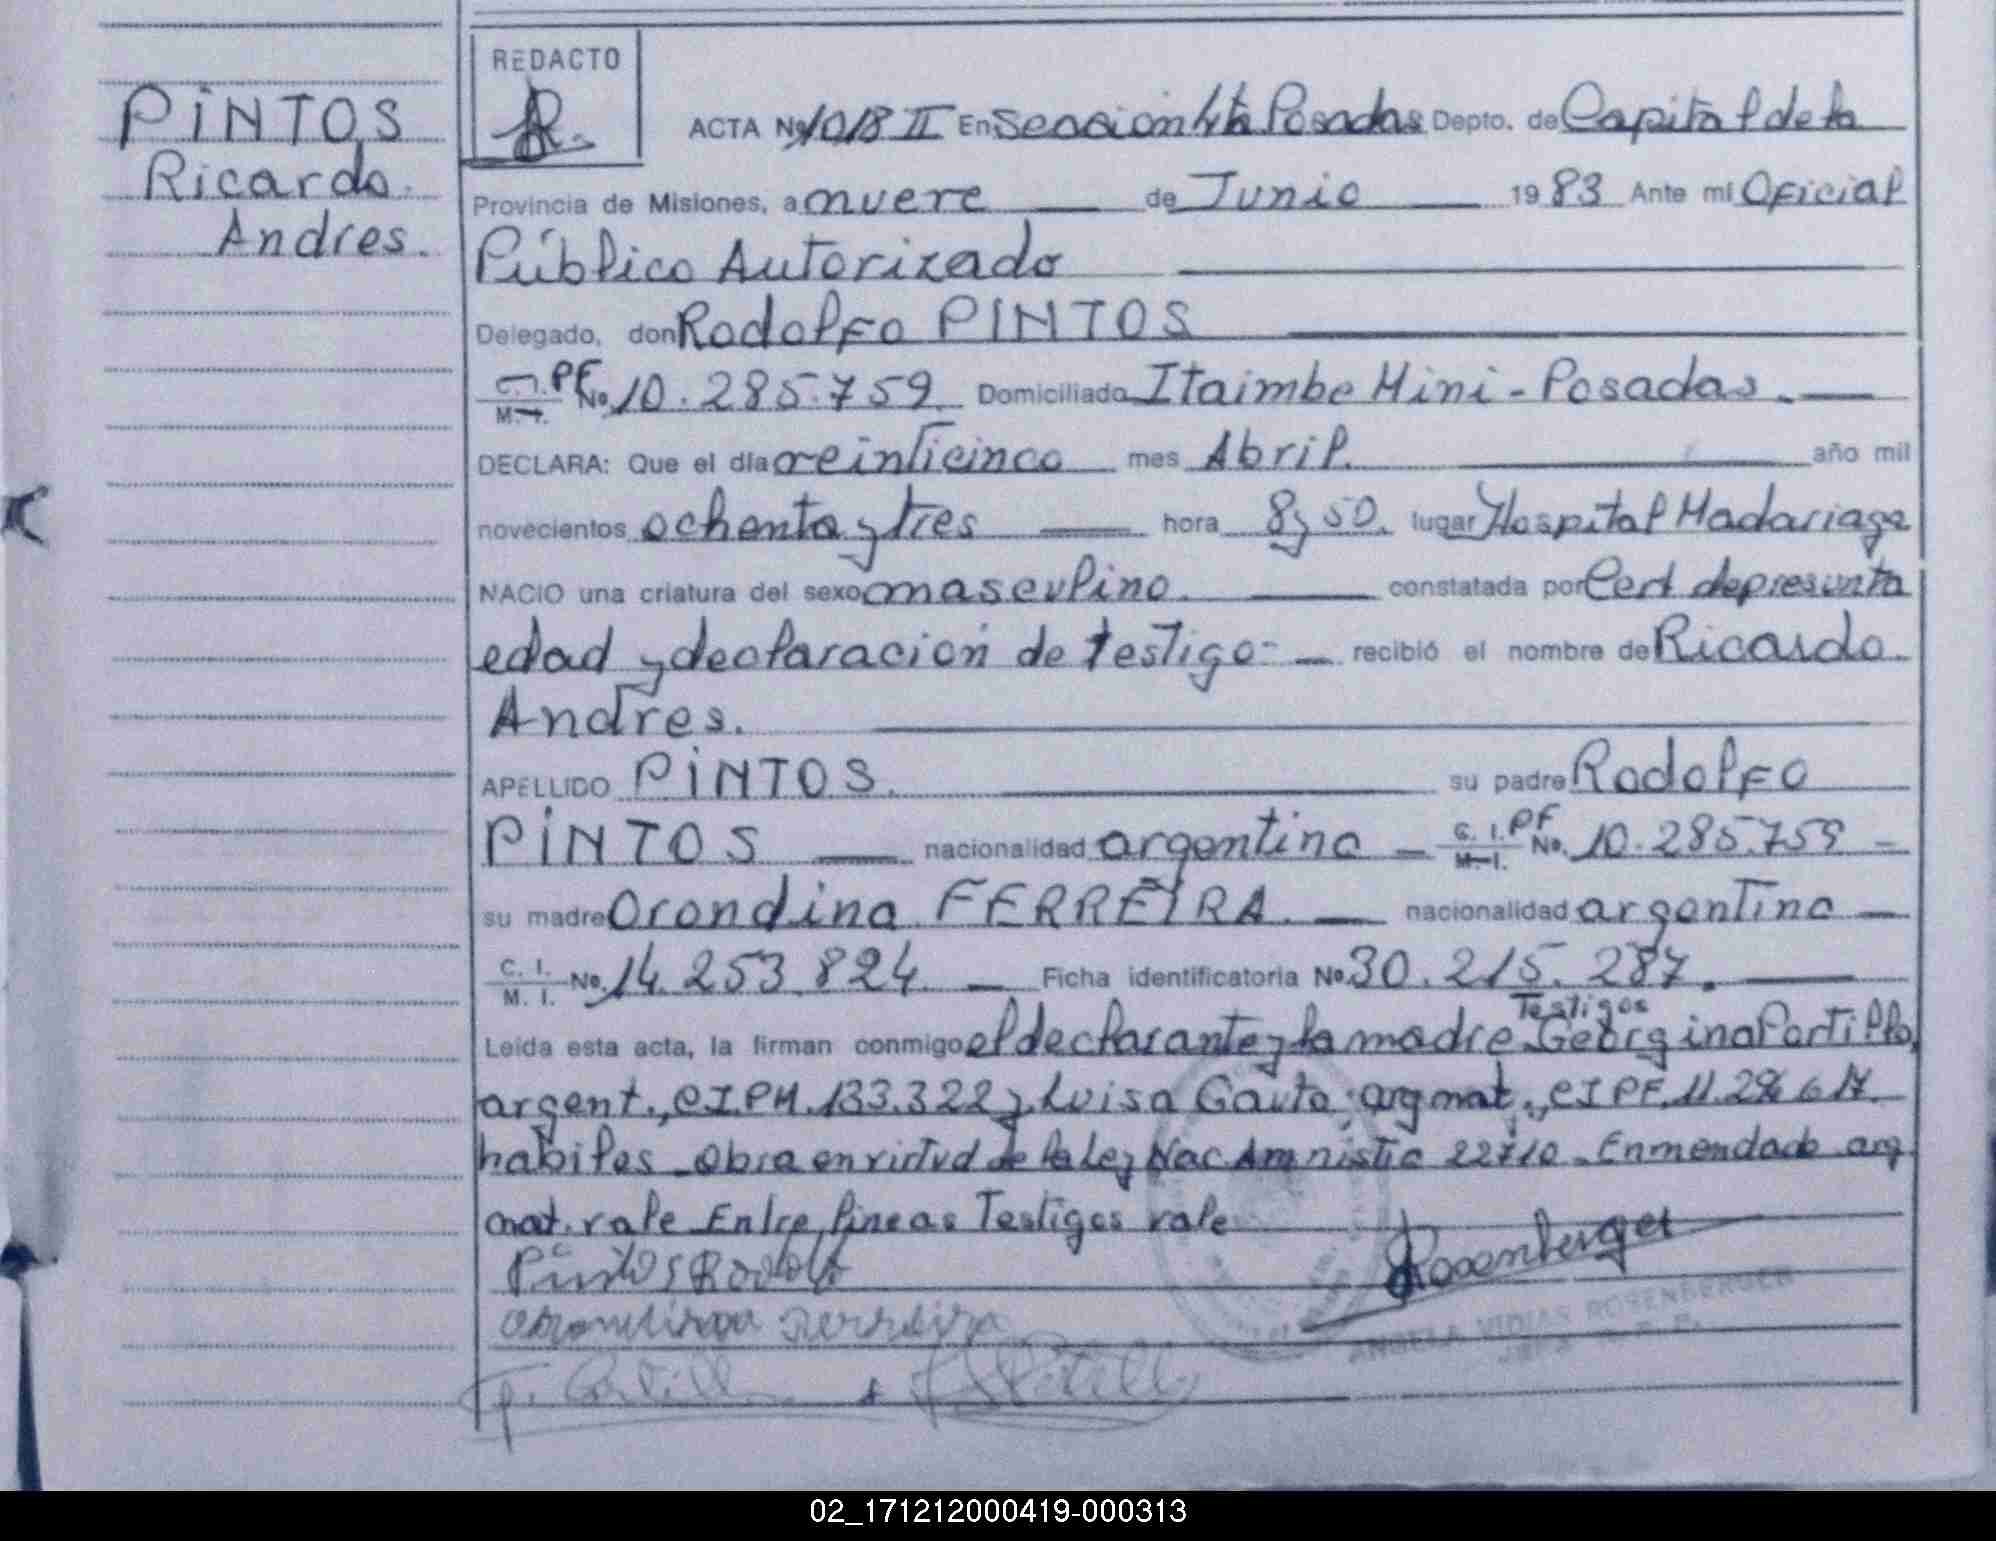 PINTOS
Ricardo.
Andres.
REDACTO
ACTA Nº 1018 II En Sección 4ta Posadas Depto. de Capital de la
Provincia de Misiones, a nueve de Junio 1983 Ante mi Oficial
Público Autorizado
Delegado, don Rodolfo PINTOS
C.I. PF M.I. No. 10.285.759 Domiciliado Itaimbe Mini - Posadas.
DECLARA: Que el día veinticinco mes Abril. año mil
novecientos ochenta y tres hora 8 y 50. lugar Hospital Madariaga
NACIO una criatura del sexo masculino. constatada por Cert de presunta
edad y declaración de testigo - recibió el nombre de Ricardo
Andres.
APELLIDO PINTOS. su padre Rodolfo
PINTOS nacionalidad argentina C. I. PF M.I. No. 10.285.759 -
su madre Orondina FERREIRA. nacionalidad argentina
C. I. M. I. No. 14.253.824. Ficha identificatoria No. 30.215.287.
Testigos
Leída esta acta, la firman conmigo el declarante y la madre Georgina Portillo,
argent., CI.PM.133.322 y Luisa Gauto arg nat., CI PF. 11.
habiles Obra en virtud de la Ley Nac Amnistia Enmendado arg
nat. vale Entre lineas Testigos vale
Pintos Rodolfo
Ferreira
Rosenberger
ANGELA VIDIAS ROSENBERGER
02_171212000419-000313